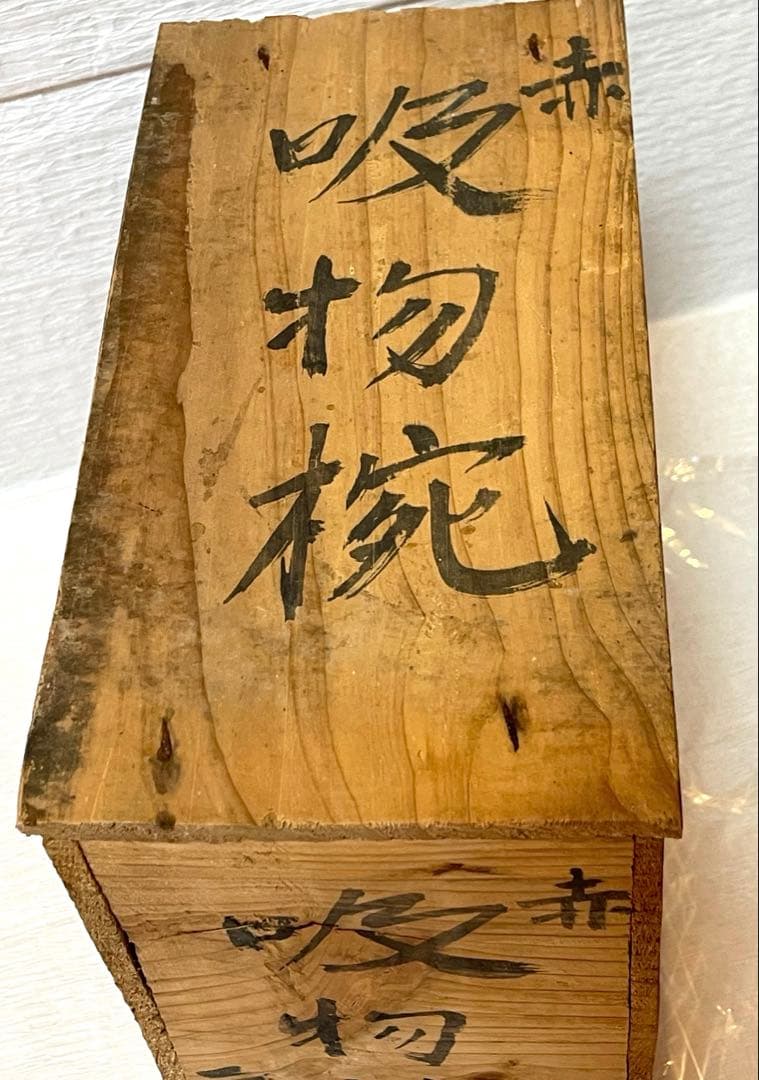 赤
吸物椀
赤
吸物